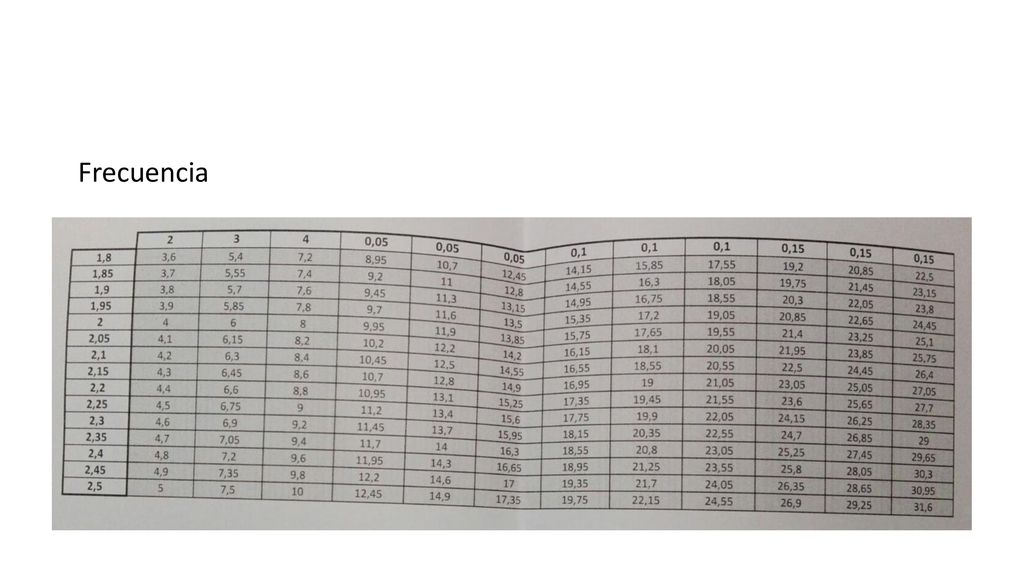 Frecuencia
2 3 4 0,05 0,05 0,05 0,1 0,1 0,1 0,15 0,15 0,15
1,8 3,6 5,4 7,2 8,95 10,7 12,45 14,15 15,85 17,55 19,2 20,85 22,5
1,85 3,7 5,55 7,4 9,2 11 12,8 14,55 16,3 18,05 19,75 21,45 23,15
1,9 3,8 5,7 7,6 9,45 11,3 13,15 14,95 16,75 18,55 20,3 22,05 23,8
1,95 3,9 5,85 7,8 9,7 11,6 13,5 15,35 17,2 19,05 20,85 22,65 24,45
2 4 6 8 9,95 11,9 13,85 15,75 17,65 19,55 21,4 23,25 25,1
2,05 4,1 6,15 8,2 10,2 12,2 14,2 16,15 18,1 20,05 21,95 23,85 25,75
2,1 4,2 6,3 8,4 10,45 12,5 14,55 16,55 18,55 20,55 22,5 24,45 26,4
2,15 4,3 6,45 8,6 10,7 12,8 14,9 16,95 19 21,05 23,05 25,05 27,05
2,2 4,4 6,6 8,8 10,95 13,1 15,25 17,35 19,45 21,55 23,6 25,65 27,7
2,25 4,5 6,75 9 11,2 13,4 15,6 17,75 19,9 22,05 24,15 26,25 28,35
2,3 4,6 6,9 9,2 11,45 13,7 15,95 18,15 20,35 22,55 24,7 26,85 29
2,35 4,7 7,05 9,4 11,7 14 16,3 18,55 20,8 23,05 25,25 27,45 29,65
2,4 4,8 7,2 9,6 11,95 14,3 16,65 18,95 21,25 23,55 25,8 28,05 30,3
2,45 4,9 7,35 9,8 12,2 14,6 17 19,35 21,7 24,05 26,35 28,65 30,95
2,5 5 7,5 10 12,45 14,9 17,35 19,75 22,15 24,55 26,9 29,25 31,6